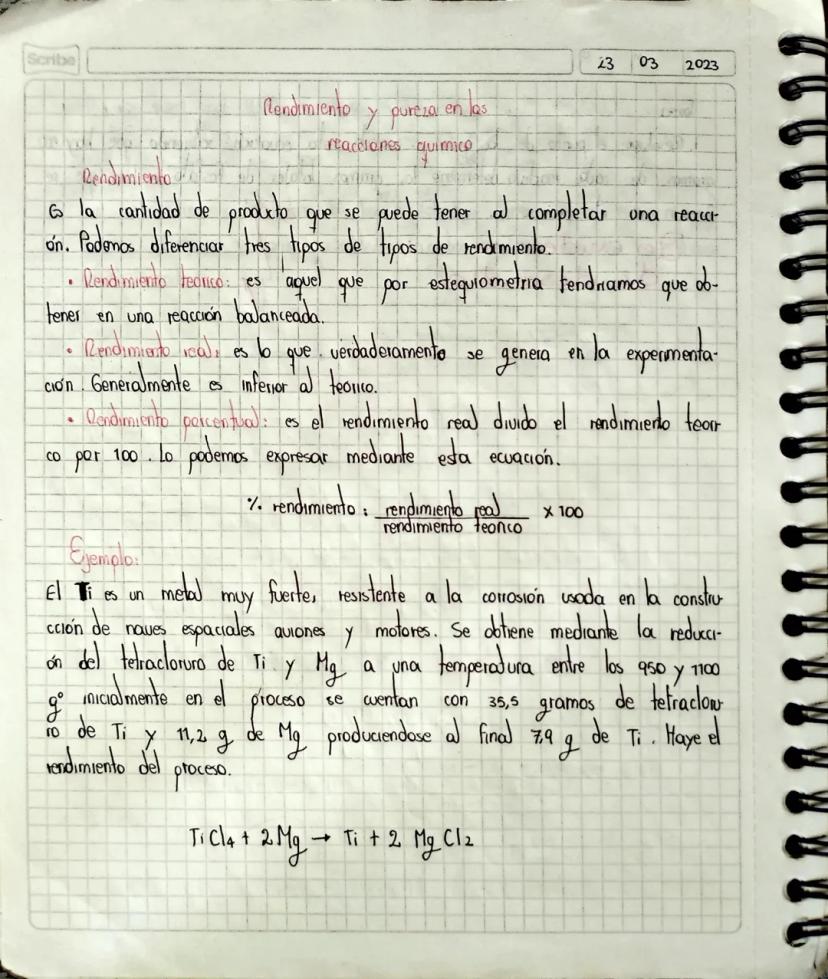 Scribe
23 03 2023
Rendimiento y pureza en las
reacciones químico
Rendimiento
Es la cantidad de producto que se puede tener al completar una reacci-
ón. Podemos diferenciar tres tipos de tipos de rendimiento.
• Rendimiento teorico: es aquel que por estequiometria tendriamos que ob-
tener en una reacción balanceada.
• Rendimiento real: es lo que verdaderamente se genera en la experimenta-
ción. Generalmente es inferior al teorico.
• Rendimiento porcentual: es el rendimiento real divido el rendimiento teori
co por 100. Lo podemos expresar mediante esta ecuación.
% rendimiento: rendimiento real x 100
rendimiento teorico
Ejemplo:
El Ti es un metal muy fuerte, resistente a la corrosión usada en la constru
cción de naves espaciales aviones y motores. Se obtiene mediante la reducci-
ón del tetracloruro de Ti y Mg a una temperatura entre los 950 y 1100
g° inicialmente en el proceso se cuentan con 35,5 gramos de tetraclor
ro de Ti y 11,2 g de Mg produciendose al final 7,9 g de Ti. Haye el
rendimiento del proceso.
TiCl4 + 2Mg → Ti + 2 MgCl2